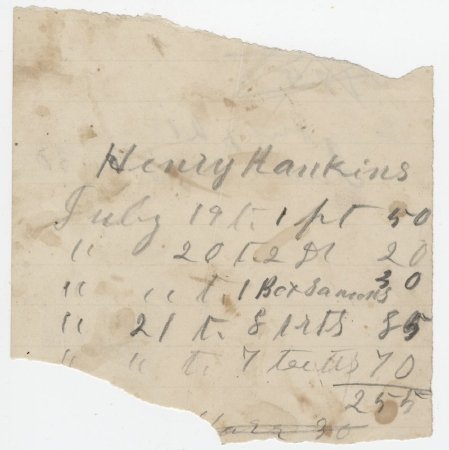 Henry Hankins
July 19 t. 1 pt 50
" 20 t. 2 Dr 20
" " t. 1 Box Samons 30
" 21 t. 8 85
" " t. 7 70
255
30